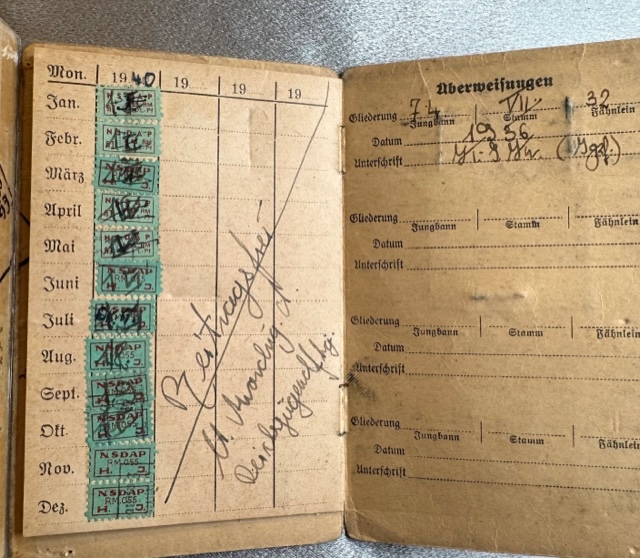 Mon. 1940 19 19 19
Jan.
Febr.
März
April
Mai
Juni
NSDAP
Juli
Aug.
Sept.
Okt.
Nov.
NSDAP
RM.0.55
H. J.
Dez.
NSDAP
RM.0.55
H. J.
Beitragsfrei
lt. Anordng. d.
Reichsjugendfhg.
Überweisungen
Gliederung 74 VII 32
Jungbann Stamm Fähnlein
Datum 1936
Unterschrift
Gliederung
Jungbann Stamm Fähnlein
Datum
Unterschrift
Gliederung
Jungbann Stamm Fähnlein
Datum
Unterschrift
Gliederung
Jungbann Stamm Fähnlein
Datum
Unterschrift